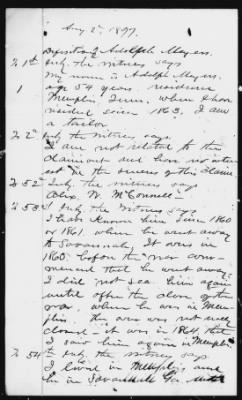 Aug 2nd, 1897.
Deposition of Adolph Meyers.
To 1st Inty. the witness says
My name is Adolph Meyers.
1 age 54 years, residence
Memphis, Tenn., where I have
resided since 1863, I am
a tailor
To 2nd Inty. the witness says.
I am not related to this
claimant and have no inter
est in the success of this claim
To 52nd Inty. the witness says
Alex. W. McConnell
To 53rd Inty. the witness says
I have known him since 1860
or 1861, when he went away
to Savannah, It was in
1860, before the war com-
menced that he went away.
I did not see him again
until after the close of the
war, when he was in Mem
phis. The war was not really
closed - it was in 1864, that
I saw him again in Memphis
To 54th Inty. the witness says
I lived in Memphis, and
he in Savannah Ga. until